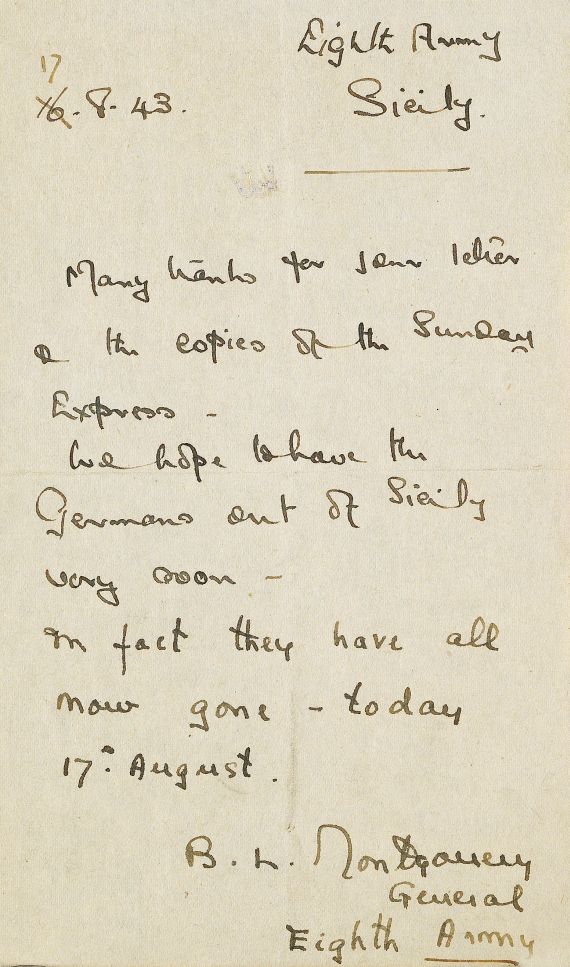 Eighth Army
17
16.8.43.
Sicily.
Many thanks for your letter
& the copies of the Sunday
Express -
We hope to have the
Germans out of Sicily
very soon -
In fact they have all
now gone - today
17. August.
B. L. Montgomery
General
Eighth Army